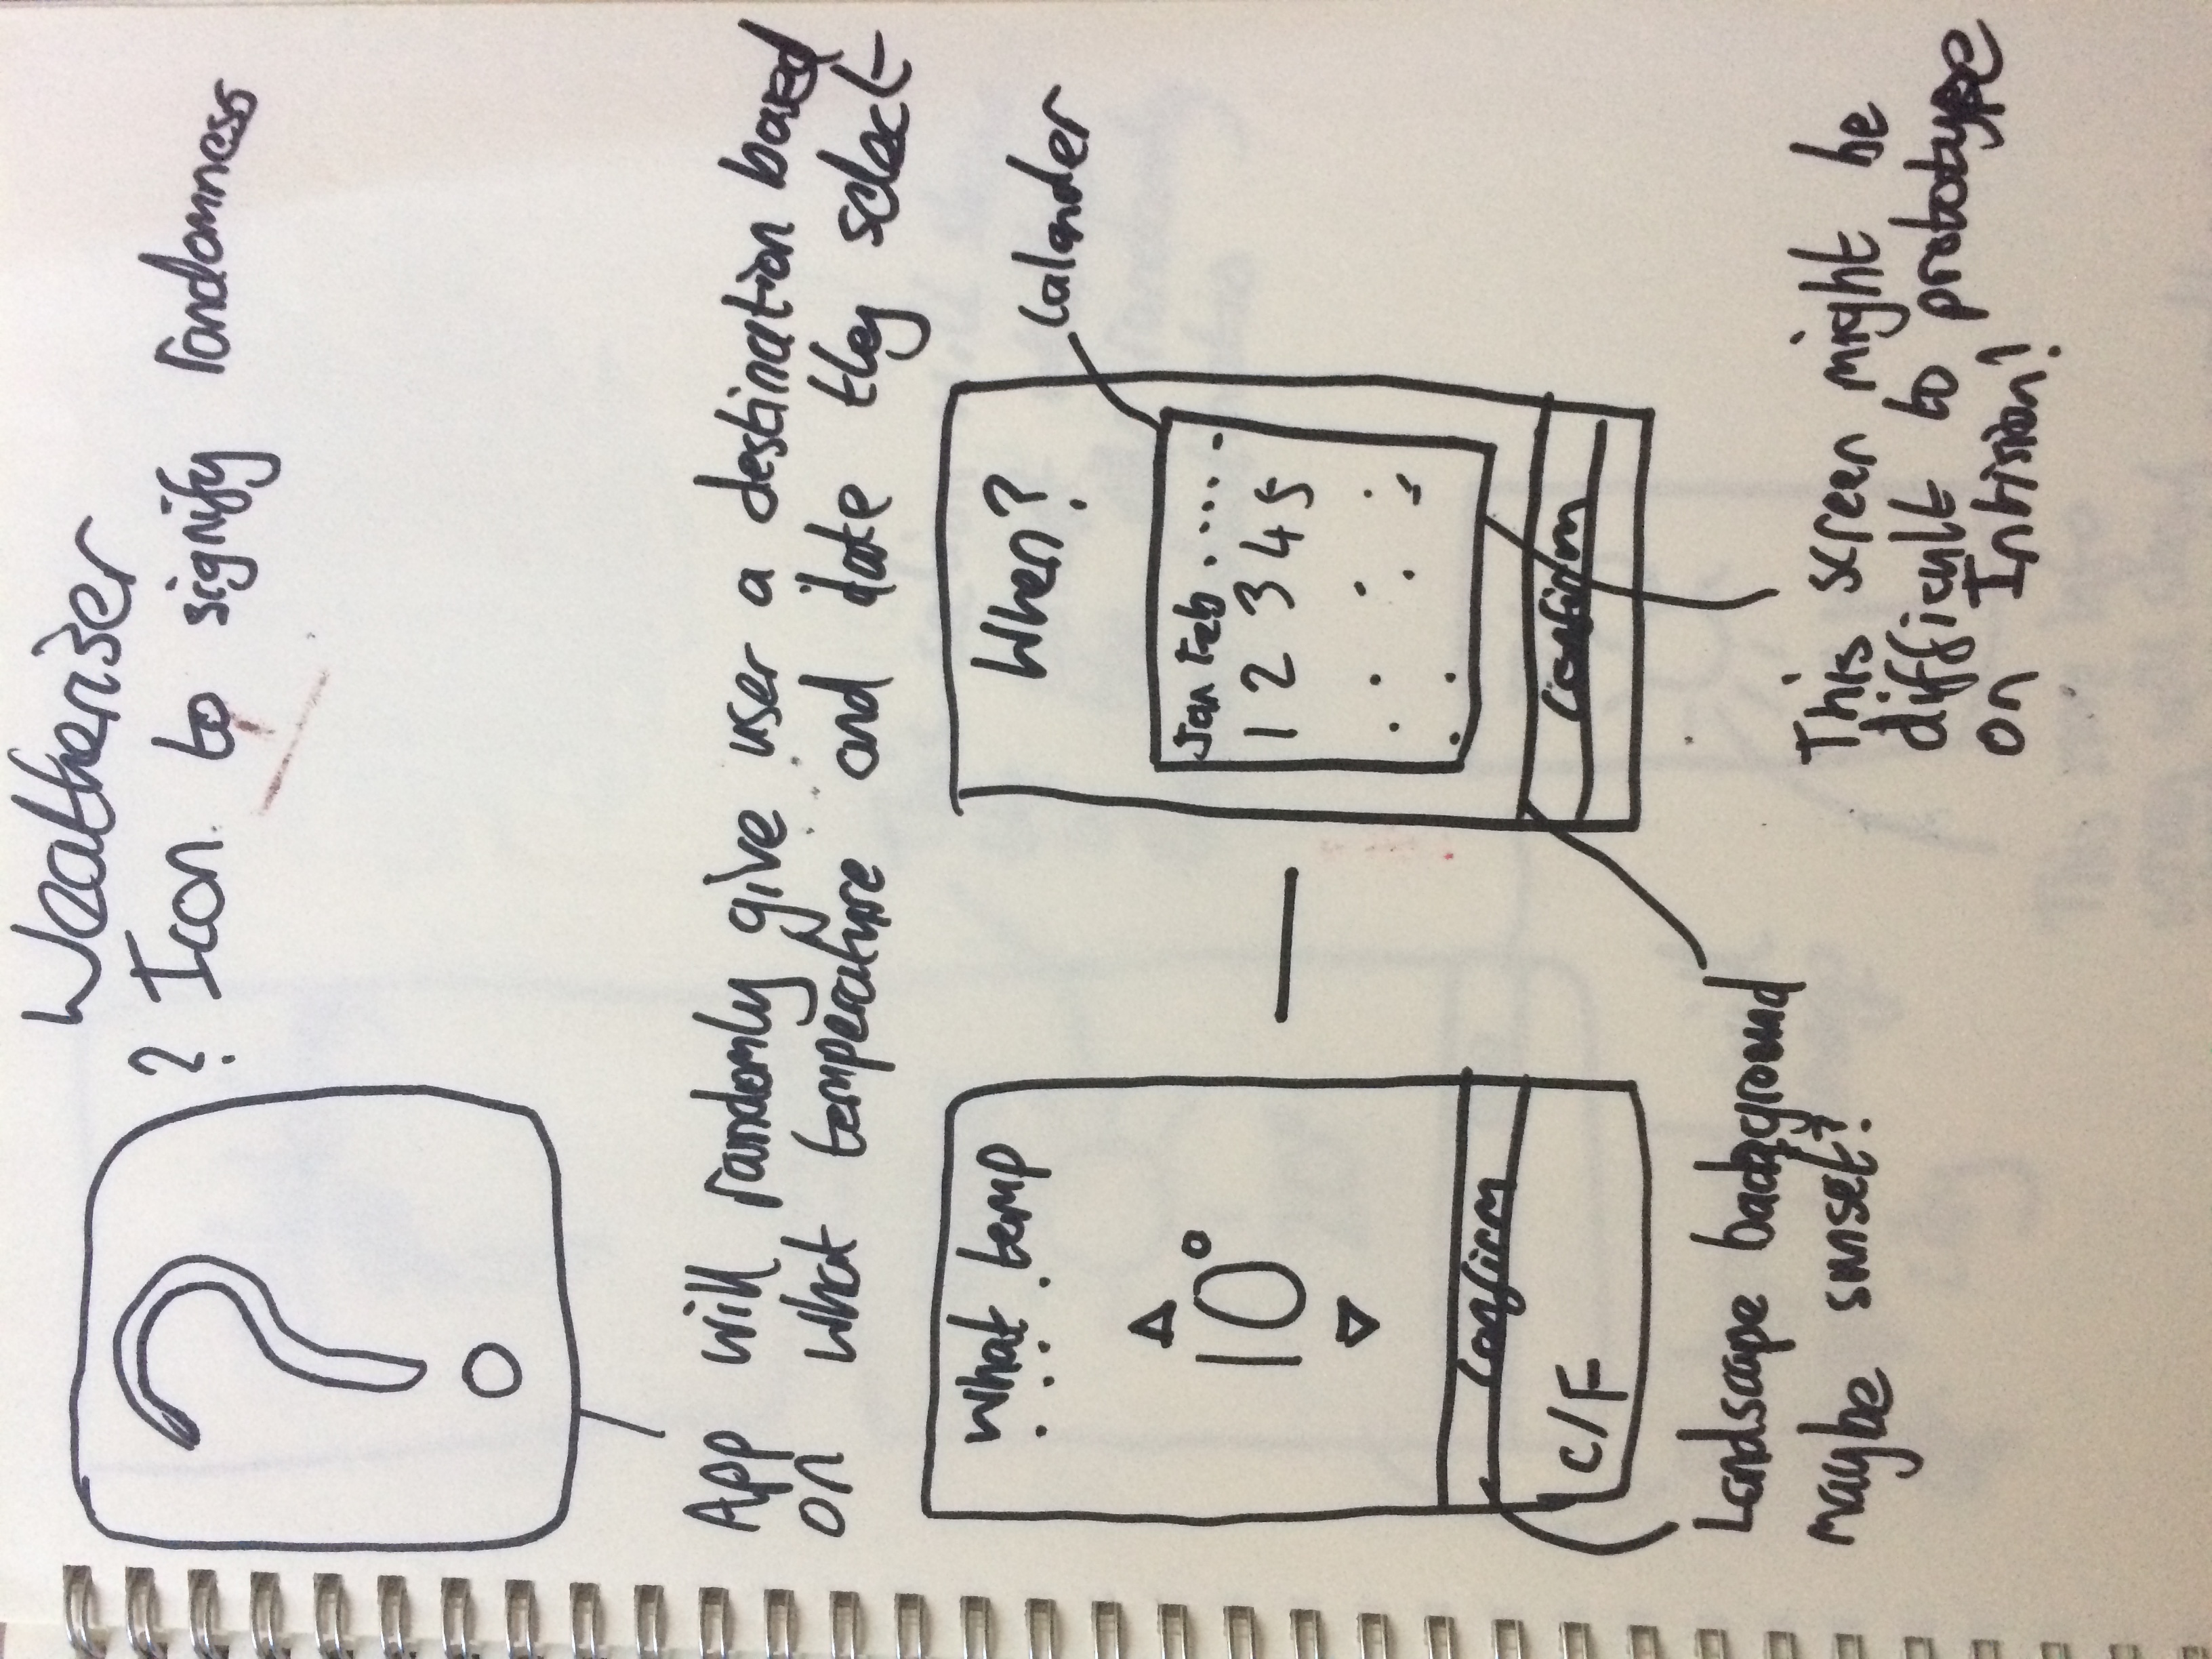 Weatheriser
? Icon to signify randomness
?
App will randomly give user a destination based
on what temperature and date they select
What temp
....
10°
Confirm
C/F
When?
Calander
Jan Feb .....
1 2 3 4 5
Confirm
Landscape background
maybe sunset?
This screen might be
difficult to prototype
on Invision!